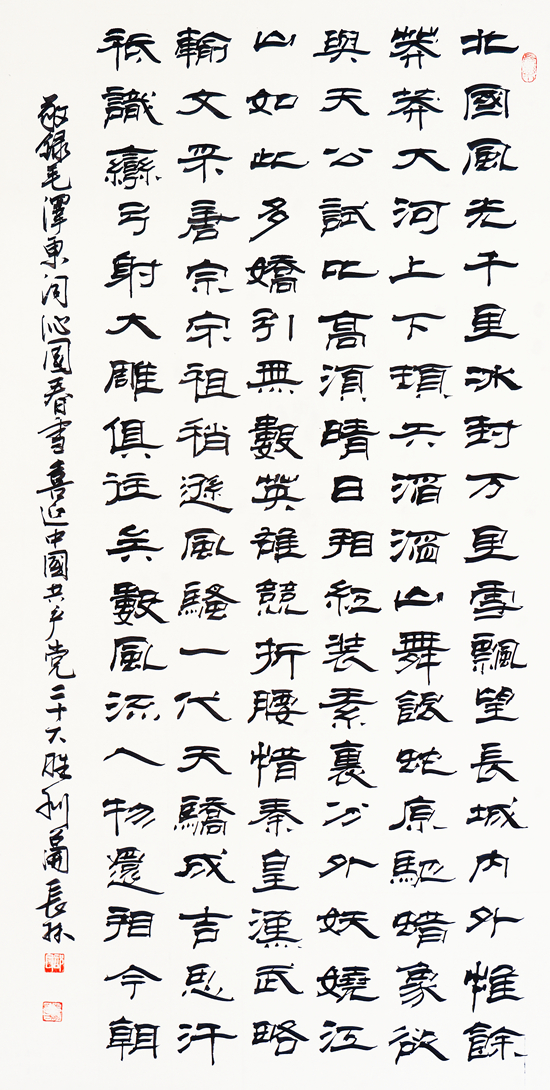 北國風光千里冰封万里雪飄望長城内外惟餘
莽莽大河上下頓失滔滔山舞銀蛇原馳蜡象欲
與天公試比高須晴日看紅装素裹分外妖嬈江
山如此多嬌引無數英雄競折腰惜秦皇漢武略
輸文采唐宗宋祖稍遜風騷一代天驕成吉思汗
祇識彎弓射大雕俱往矣數風流人物還看今朝
敬録毛澤東词沁園春雪喜迎中國共产党二十大胜利長